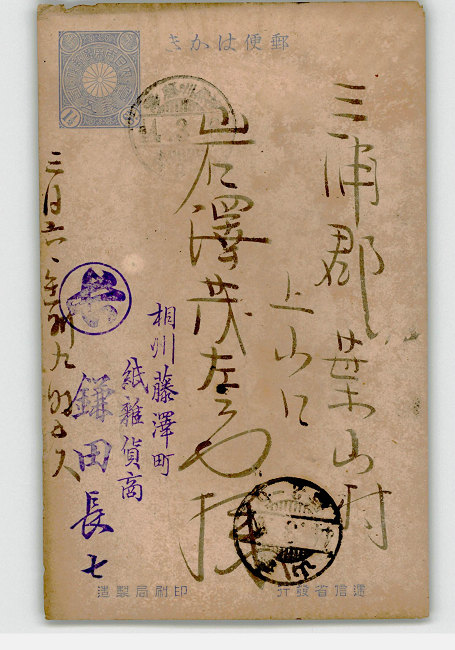 郵便はかき
三浦郡葉山村
上山口
岩澤茂左ヱ門様
相州藤澤町
紙雑貨商
鎌田長七
三月六日午前九時
逓信省發行
印刷局製造